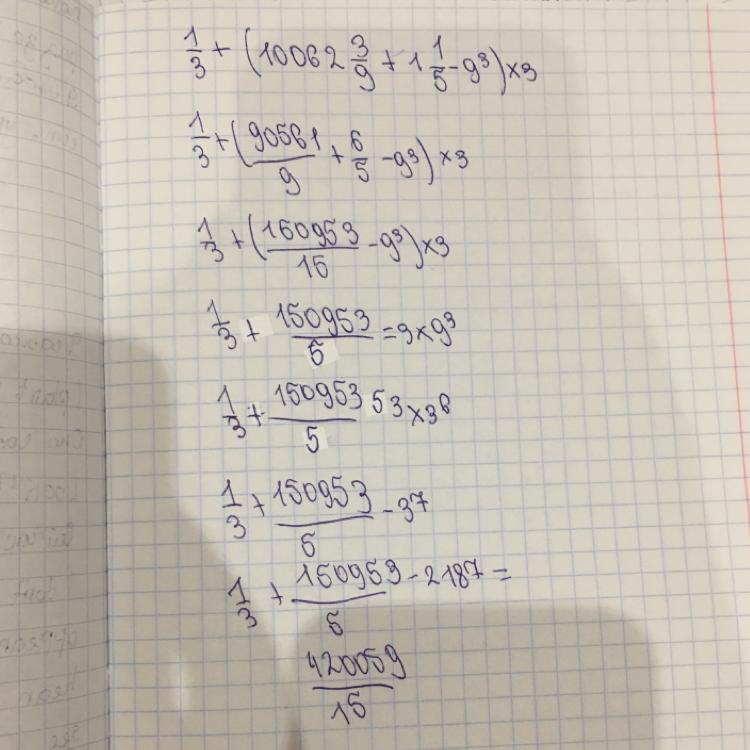 1/3 + (10062 3/9 + 1 1/5 - 9³) × 3
1/3 + (90561/9 + 6/5 - 9³) × 3
1/3 + (150953/15 - 9³) × 3
1/3 + 150953/5 = 3 × 9³
1/3 + 150953/5 5 3 × 3⁶
1/3 + 150953/5 - 3⁷
1/3 + 150953/5 - 2187 =
420059/15